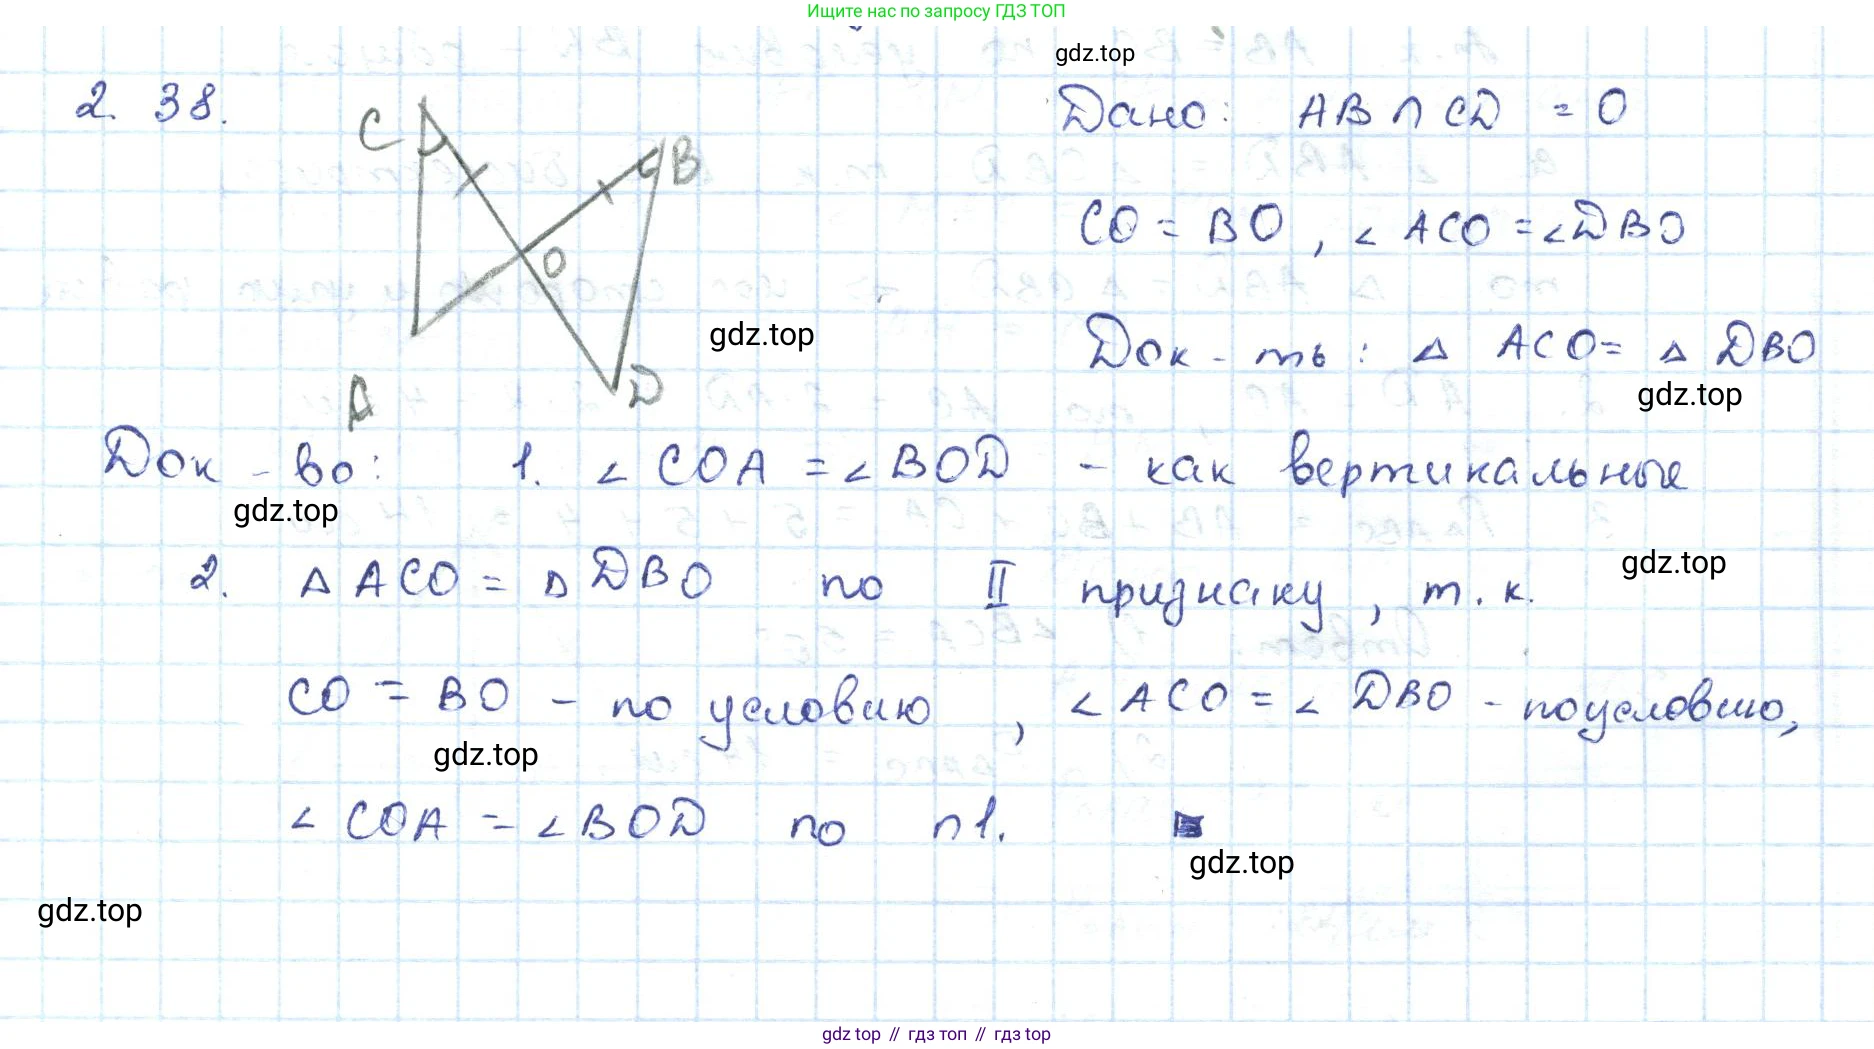 Ищите нас по запросу ГДЗ ТОП
gdz.top
2. 38.
C
B
O
A
D
Дано: AB ∩ CD = O
CO = BO, ∠ ACO = ∠DBO
gdz.top
Док-ть: △ ACO = △ DBO
gdz.top
Док-во: 1. ∠ COA = ∠ BOD - как вертикальные
gdz.top
gdz.top
2. △ ACO = △ DBO по II признаку, т.к.
CO = BO - по условию, ∠ ACO = ∠ DBO - по условию,
gdz.top
∠ COA = ∠ BOD по п1.
gdz.top
gdz.top
gdz.top // гдз топ // гдз top